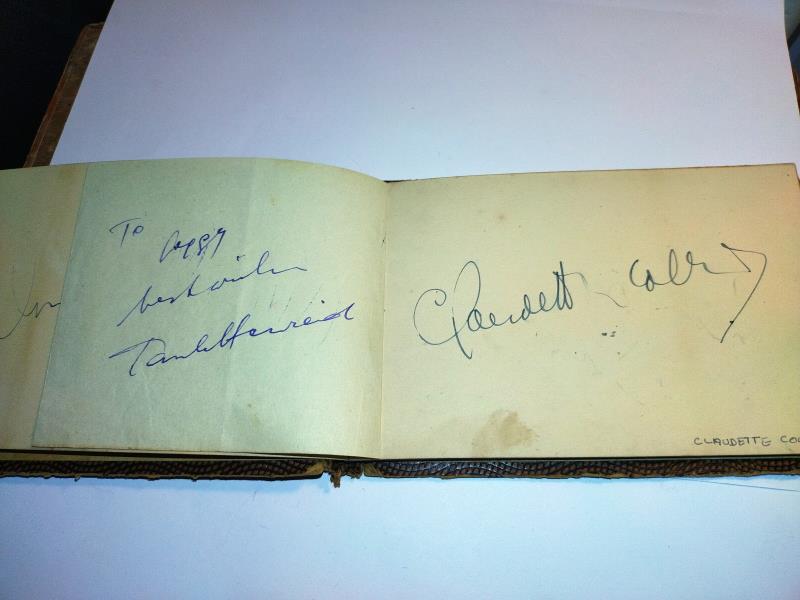 To Peggy
best wishes
Paul Henreid
Claudette Colbert
CLAUDETTE CO